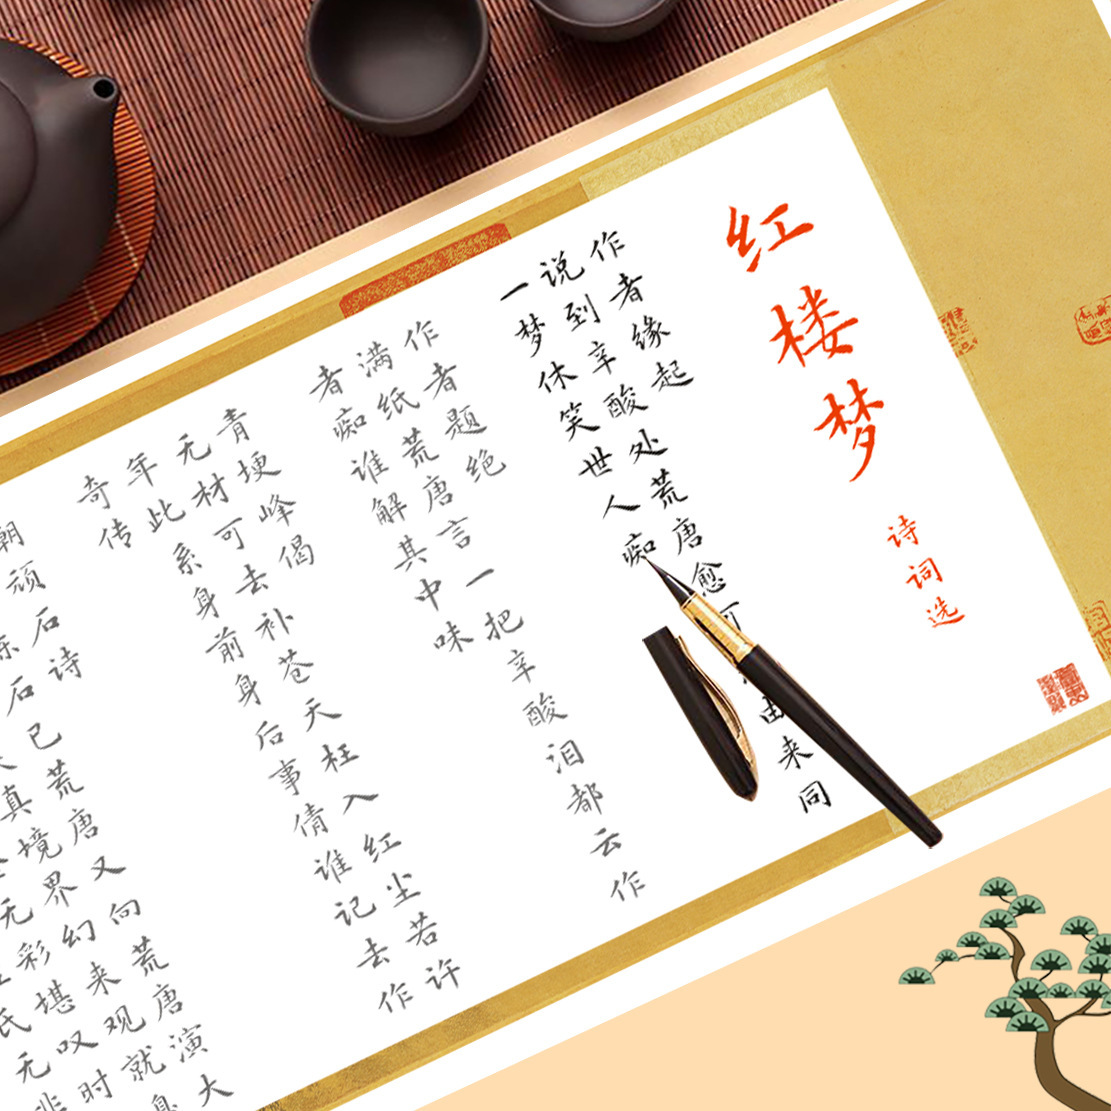 红楼梦
诗词选
作者缘起
说到辛酸处荒唐愈可由来同
一梦休笑世人痴
作者题绝
满纸荒唐言一把辛酸泪都云作
者痴谁解其中味
青埂峰偈
无材可去补苍天枉入红尘若许
年此系身前身后事倩谁记去作
奇传
顽石诗
石已荒唐又向荒唐演大
真境界幻来观就
无彩堪叹时
氏无